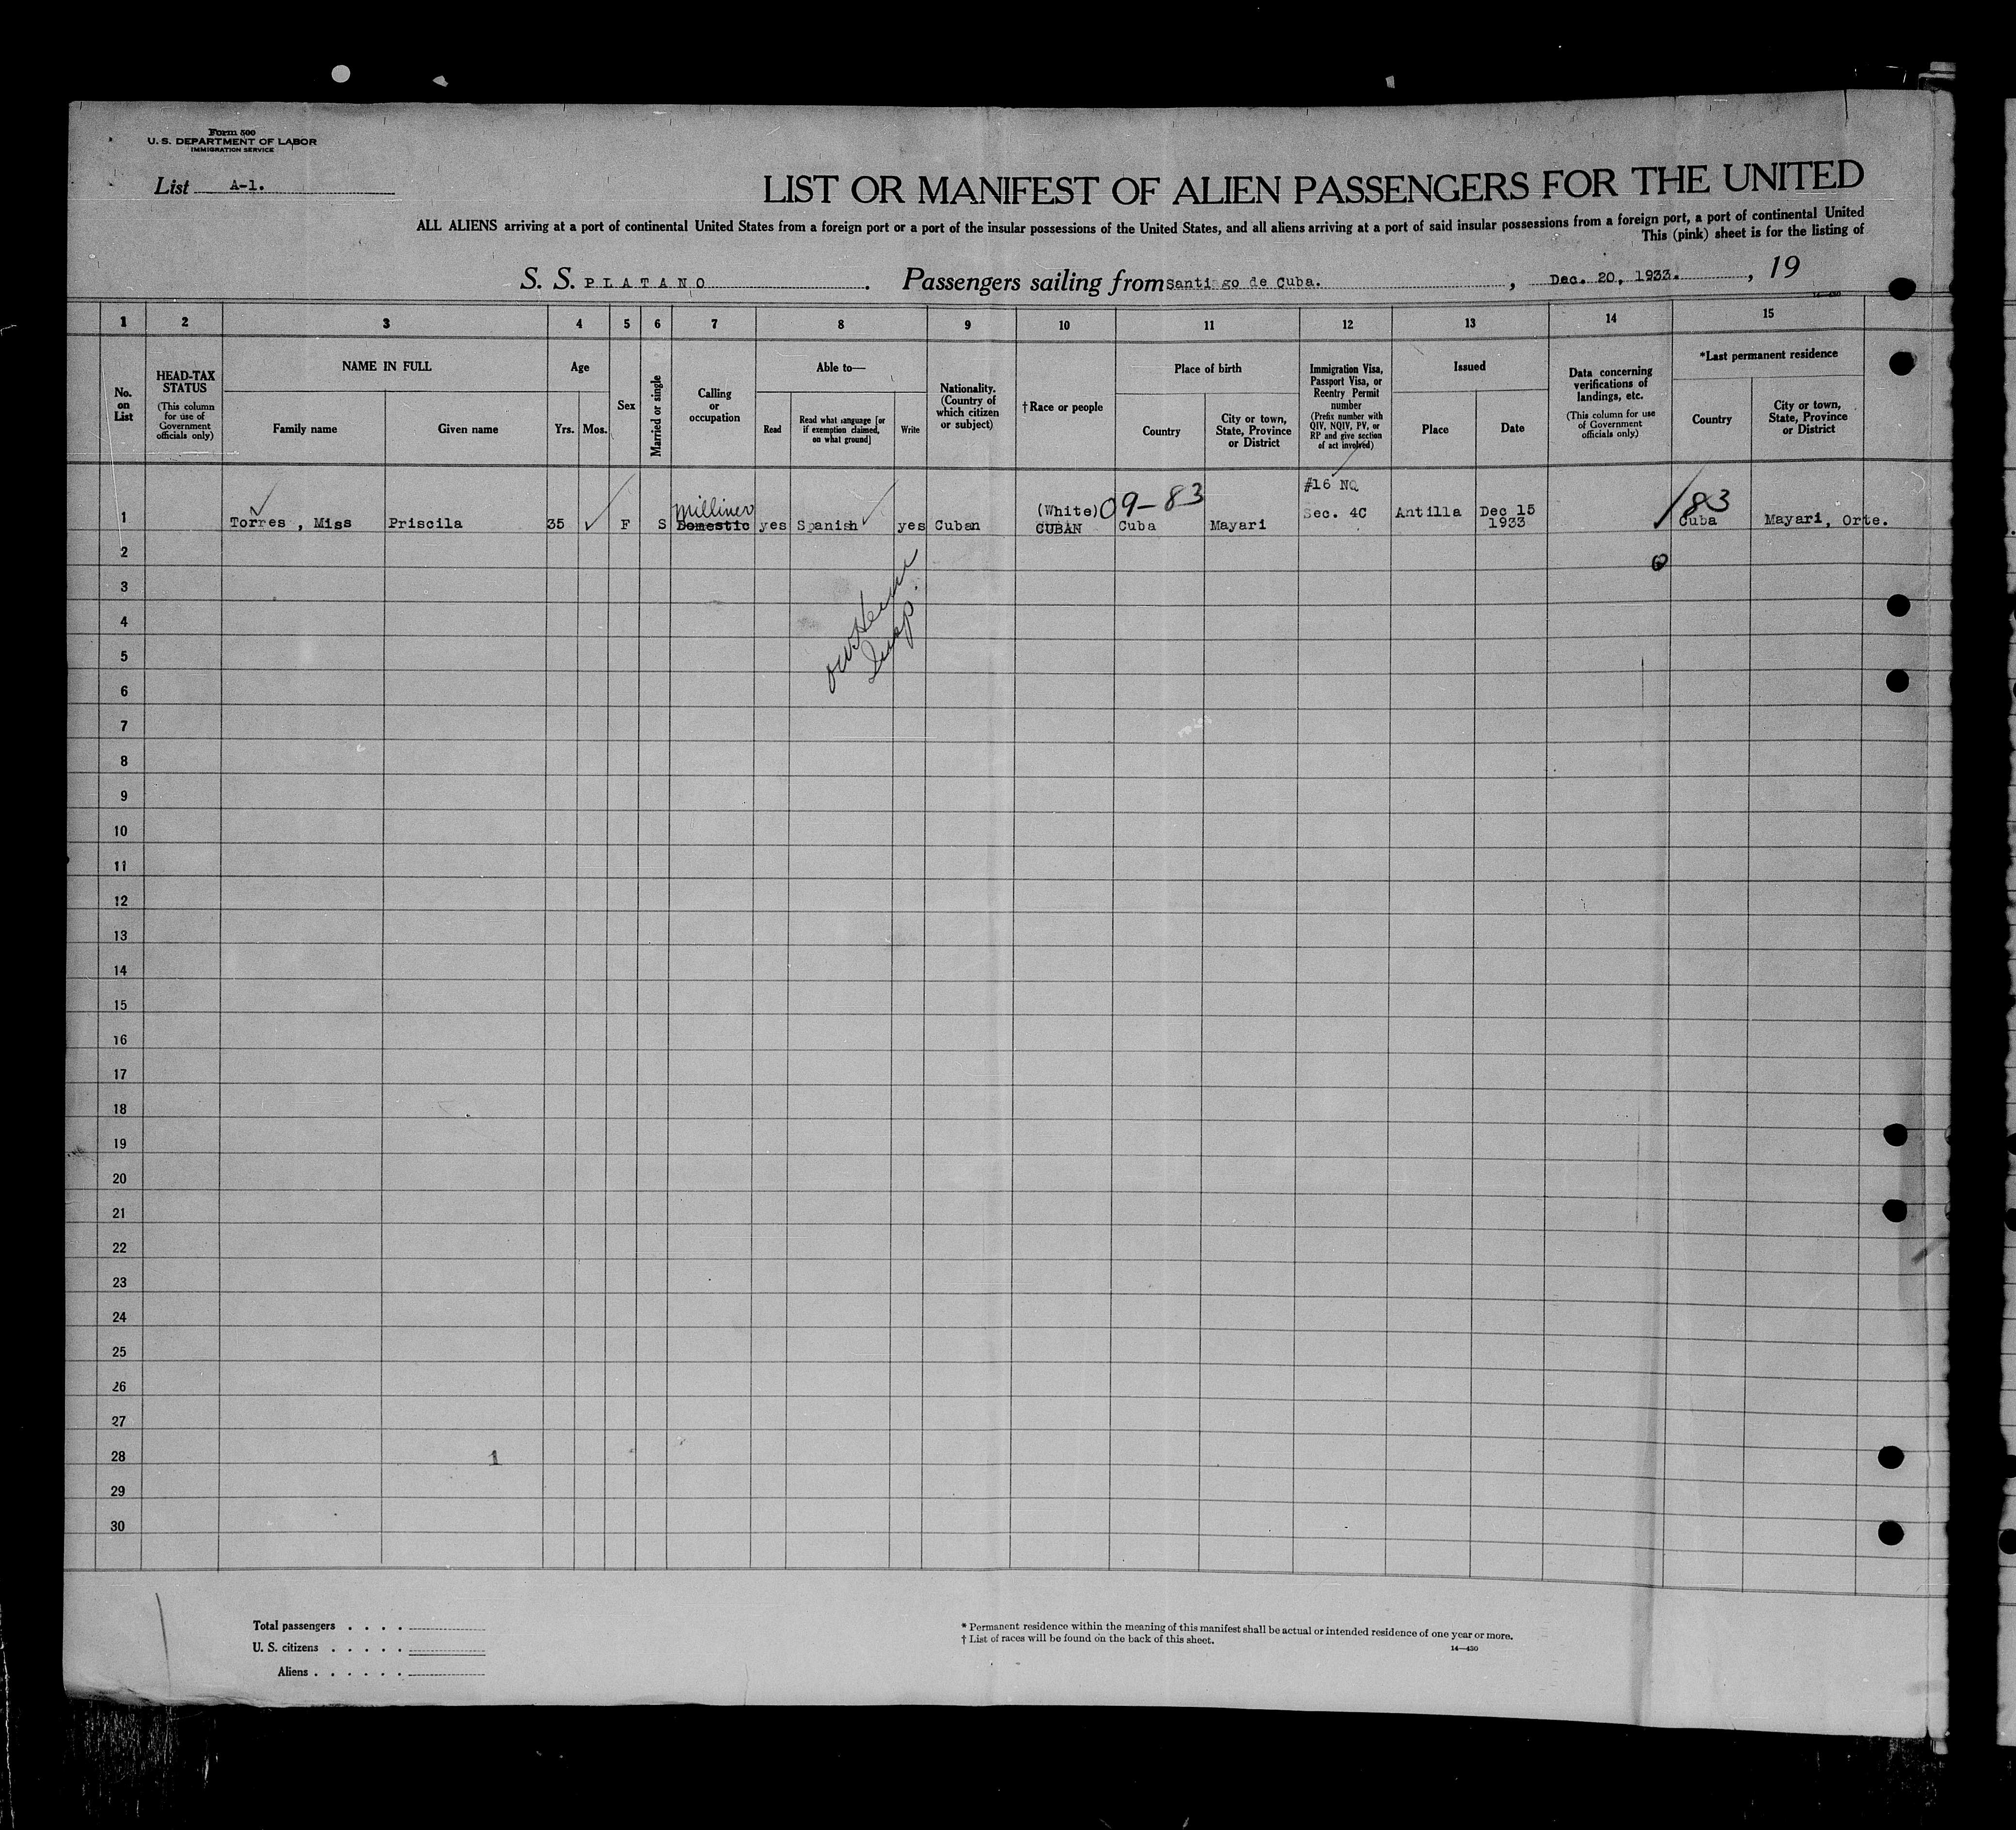 Form 500
U. S. DEPARTMENT OF LABOR
IMMIGRATION SERVICE
List A-1.
LIST OR MANIFEST OF ALIEN PASSENGERS FOR THE UNITED
ALL ALIENS arriving at a port of continental United States from a foreign port or a port of the insular possessions of the United States, and all aliens arriving at a port of said insular possessions from a foreign port, a port of continental United
This (pink) sheet is for the listing of
S. S. PLATANO . Passengers sailing from Santiago de Cuba. , Dec. 20, 1933. , 19
14-430
1 2 3 4 5 6 7 8 9 10 11 12 13 14 15
No. on List
HEAD-TAX STATUS
(This column for use of Government officials only)
NAME IN FULL
Family name
Given name
Age
Yrs. Mos.
Sex
Married or single
Calling or occupation
Able to—
Read
Read what language [or if exemption claimed, on what ground]
Write
Nationality. (Country of which citizen or subject)
† Race or people
Place of birth
Country
City or town, State, Province or District
Immigration Visa, Passport Visa, or Reentry Permit number
(Prefix number with QIV, NQIV, PV, or RP and give section of act involved)
Issued
Place
Date
Data concerning verifications of landings, etc.
(This column for use of Government officials only)
*Last permanent residence
Country
City or town, State, Province or District
Milliner (White) 09-83 #16 NQ 83
1 Torres , Miss Priscila 35 F S Domestic yes Spanish yes Cuban CUBAN Cuba Mayari Sec. 4C Antilla Dec 15 1933 Cuba Mayari, Orte.
2
3
4
5
Insp.
6
7
8
9
10
11
12
13
14
15
16
17
18
19
20
21
22
23
24
25
26
27
28 1
29
30
Total passengers . . . .
U. S. citizens . . . . .
Aliens . . . . . .
* Permanent residence within the meaning of this manifest shall be actual or intended residence of one year or more.
† List of races will be found on the back of this sheet.
14—430